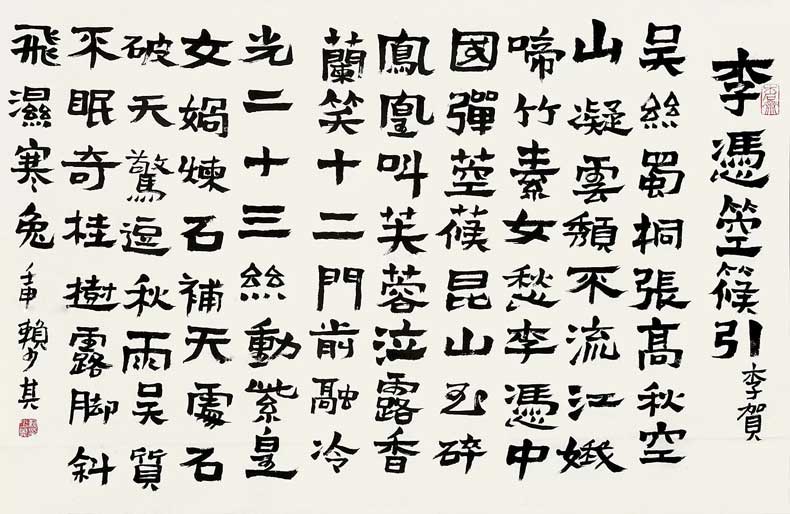 李憑箜篌引
李賀
吴絲蜀桐張高秋空
山凝雲頹不流江娥
啼竹素女愁李憑中
國彈箜篌昆山玉碎
鳳凰叫芙蓉泣露香
蘭笑十二門前融冷
光二十三絲動紫皇
女媧煉石補天處石
破天驚逗秋雨吴質
不眠奇桂樹露脚斜
飛濕寒兔
壬申賴少其